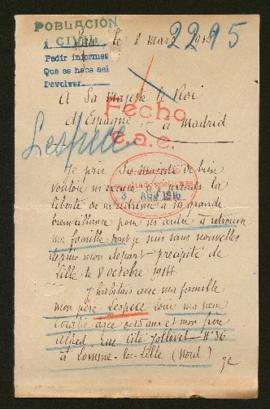 POBLACION
CIVIL
le 8 mars 1916
2295
A
Pedir informes
Que se haba así
Devolver
A Sa Majesté le Roi
d'Espagne à Madrid
Fecho
e.a.e.
Lespece
Je prie Sa Majesté de bien
vouloir
liberté de à la grande
bienveillance pour m'aider à retrouver
ma famille dont je suis sans nouvelles
depuis mon départ précipité de
Lille le 8 octobre 1914
J'habitais avec ma famille
mon père Lespece ma mère
Coralie agée 52 ans et mon frère
Alfred rue Cité Jollivet N° 36
à Lomme-lez-Lille (Nord)
Je